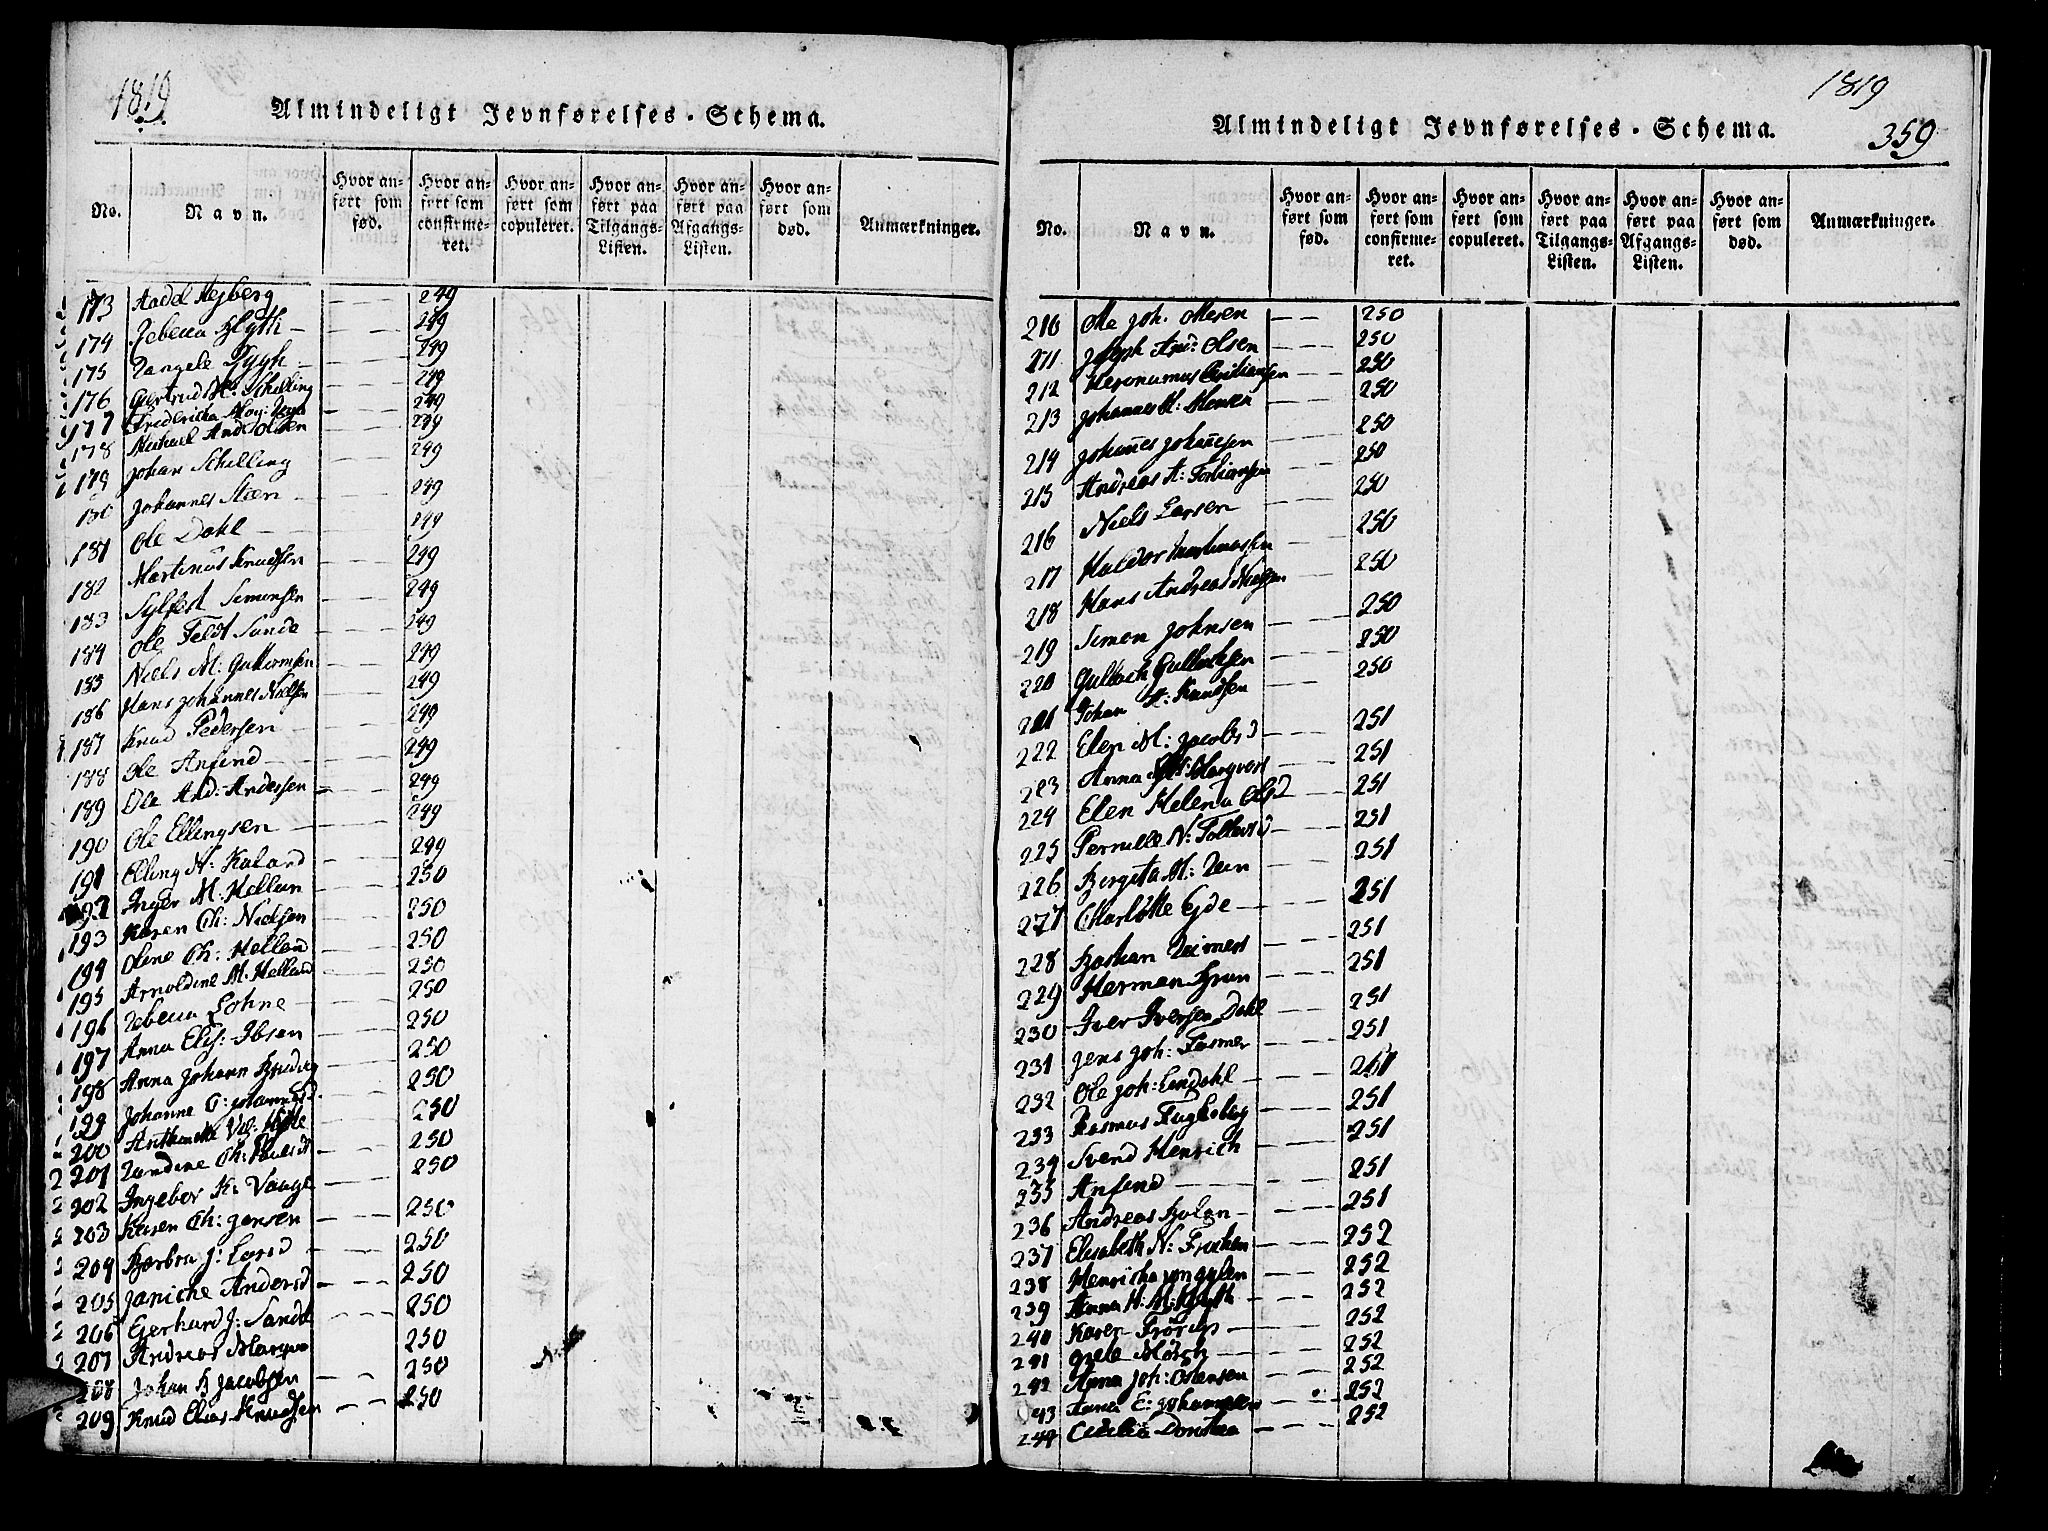 1819
Almindeligt Jevnførelses-Schema.
No.
Navn.
Hvor anført som fød.
Hvor anført som confirmeret.
Hvor anført som copuleret.
Hvor anført paa Tilgangs-Listen.
Hvor anført paa Afgangs-Listen.
Hvor anført som død.
Anmærkninger.
173 Aadel Hejberg — — 249
174 Rebecca Blyth — — — 249
175 — — 249
176 Gertrud M: Schilling — — 249
177 Fridericka — — 249
178 Michael And: Olsen — — 249
179 Johan Schilling — — 249
180 Johannes Steen — — — 249
181 Ole Dahl — — — 249
182 Martinus Knudsen — — 249
183 Sylfest Simensen — — 249
184 Ole Feldt Sunde — — 249
185 Niels M: Guttormsen — — 249
186 Hans Johannes Nielsen — — 249
187 Knud Pedersen — — 249
188 Ole Anfind — — 249
189 Ole And: Andersen — — 249
190 Ole Ellingsen — — 249
191 Elling N: Kaland — — 249
192 Inger M: Hellen — — 250
193 Karen Ch: Nielsen — — 250
194 Oline Ch: Helland — — 250
195 Arnoldine M: Helland — — 250
196 Rebecca Lohne — — 250
197 Anna Elis: Ibsen — — 250
198 Anna Johann — — 250
199 Johanne — — 250
200 Vil: — — 250
201 Ch: Pauls d — — 250
202 Ingebor K: — — 250
203 Karen Ch: Jensen — — 250
204 Barbra J: Larsd — — 250
205 Janiche Andersd — — 250
206 Gerhard J: Sande — — 250
207 Andreas — — 250
208 Johan B Jacobsen — — 250
209 Knud Elias Knudsen — — 250
1819
359
Almindeligt Jevnførelses-Schema.
No.
Navn.
Hvor anført som fød.
Hvor anført som confirmeret.
Hvor anført som copuleret.
Hvor anført paa Tilgangs-Listen.
Hvor anført paa Afgangs-Listen.
Hvor anført som død.
Anmærkninger.
210 Ole Joh. Olesen — — 250
211 Joseph And: Olsen — — 250
212 Heronumus — — 250
213 Johannes H: Monsen — — 250
214 Johañes Johañesen — — 250
215 Andreas A: — — 250
216 Niels Larsen — — 250
217 Haldor Martinussen — — 250
218 Hans Andreas — — 250
219 Simon Johnsen — — 250
220 Gullach Gullachsen — — 250
221 Johan A: Knudsen — — 250
222 Elen M: Jacobsd — — 251
223 Anna — — 251
224 Elen Helena Olsd — — 251
225 Pernille N: Tollevsd — — 251
226 Bergita M: — — 251
227 Charlotte Eyde — — 251
228 Reimers — — 251
229 Herman Brun — — 251
230 Iver Iversen Dahl — — 251
231 Jens Joh: Fasmer — — 251
232 Ole Joh: Lindahl — — 251
233 Rasmus Fuglsberg — — 251
234 Svend Henrich — — 251
235 Anfind — — 251
236 Andreas Bolan — — 251
237 Elisabeth N: — — 252
238 Henricha — — 252
239 Anna H: — — 252
240 Karen — — 252
241 — — 252
242 Anna Joh: — — 252
243 Anna E: — — 252
244 Cecilia Dorothea — — 252